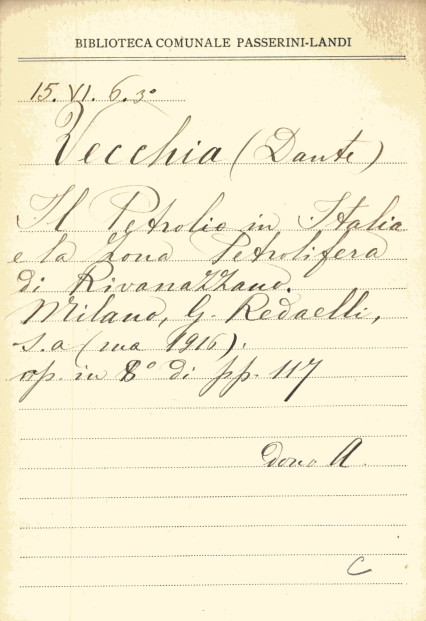 BIBLIOTECA COMUNALE PASSERINI-LANDI
15. VI. 6. 3º
Vecchia (Dante)
Il Petrolio in Italia
e la zona Petrolifera
di Rivanazzano.
Milano, G. Redaelli,
s.a (ma 1916).
op. in 8º di pp. 117
dono A.
C